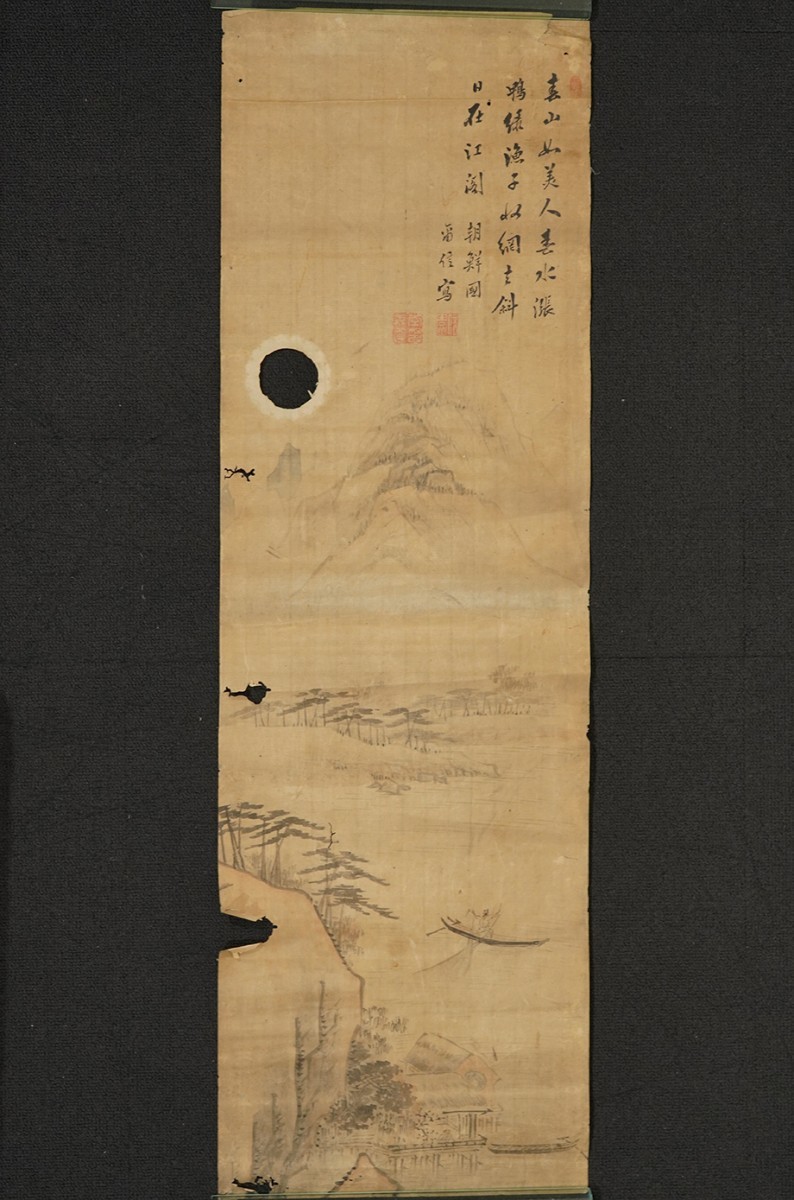 春山如美人春水漲
鴨綠漁子收網去斜
日在江閣
朝鮮國
信寫